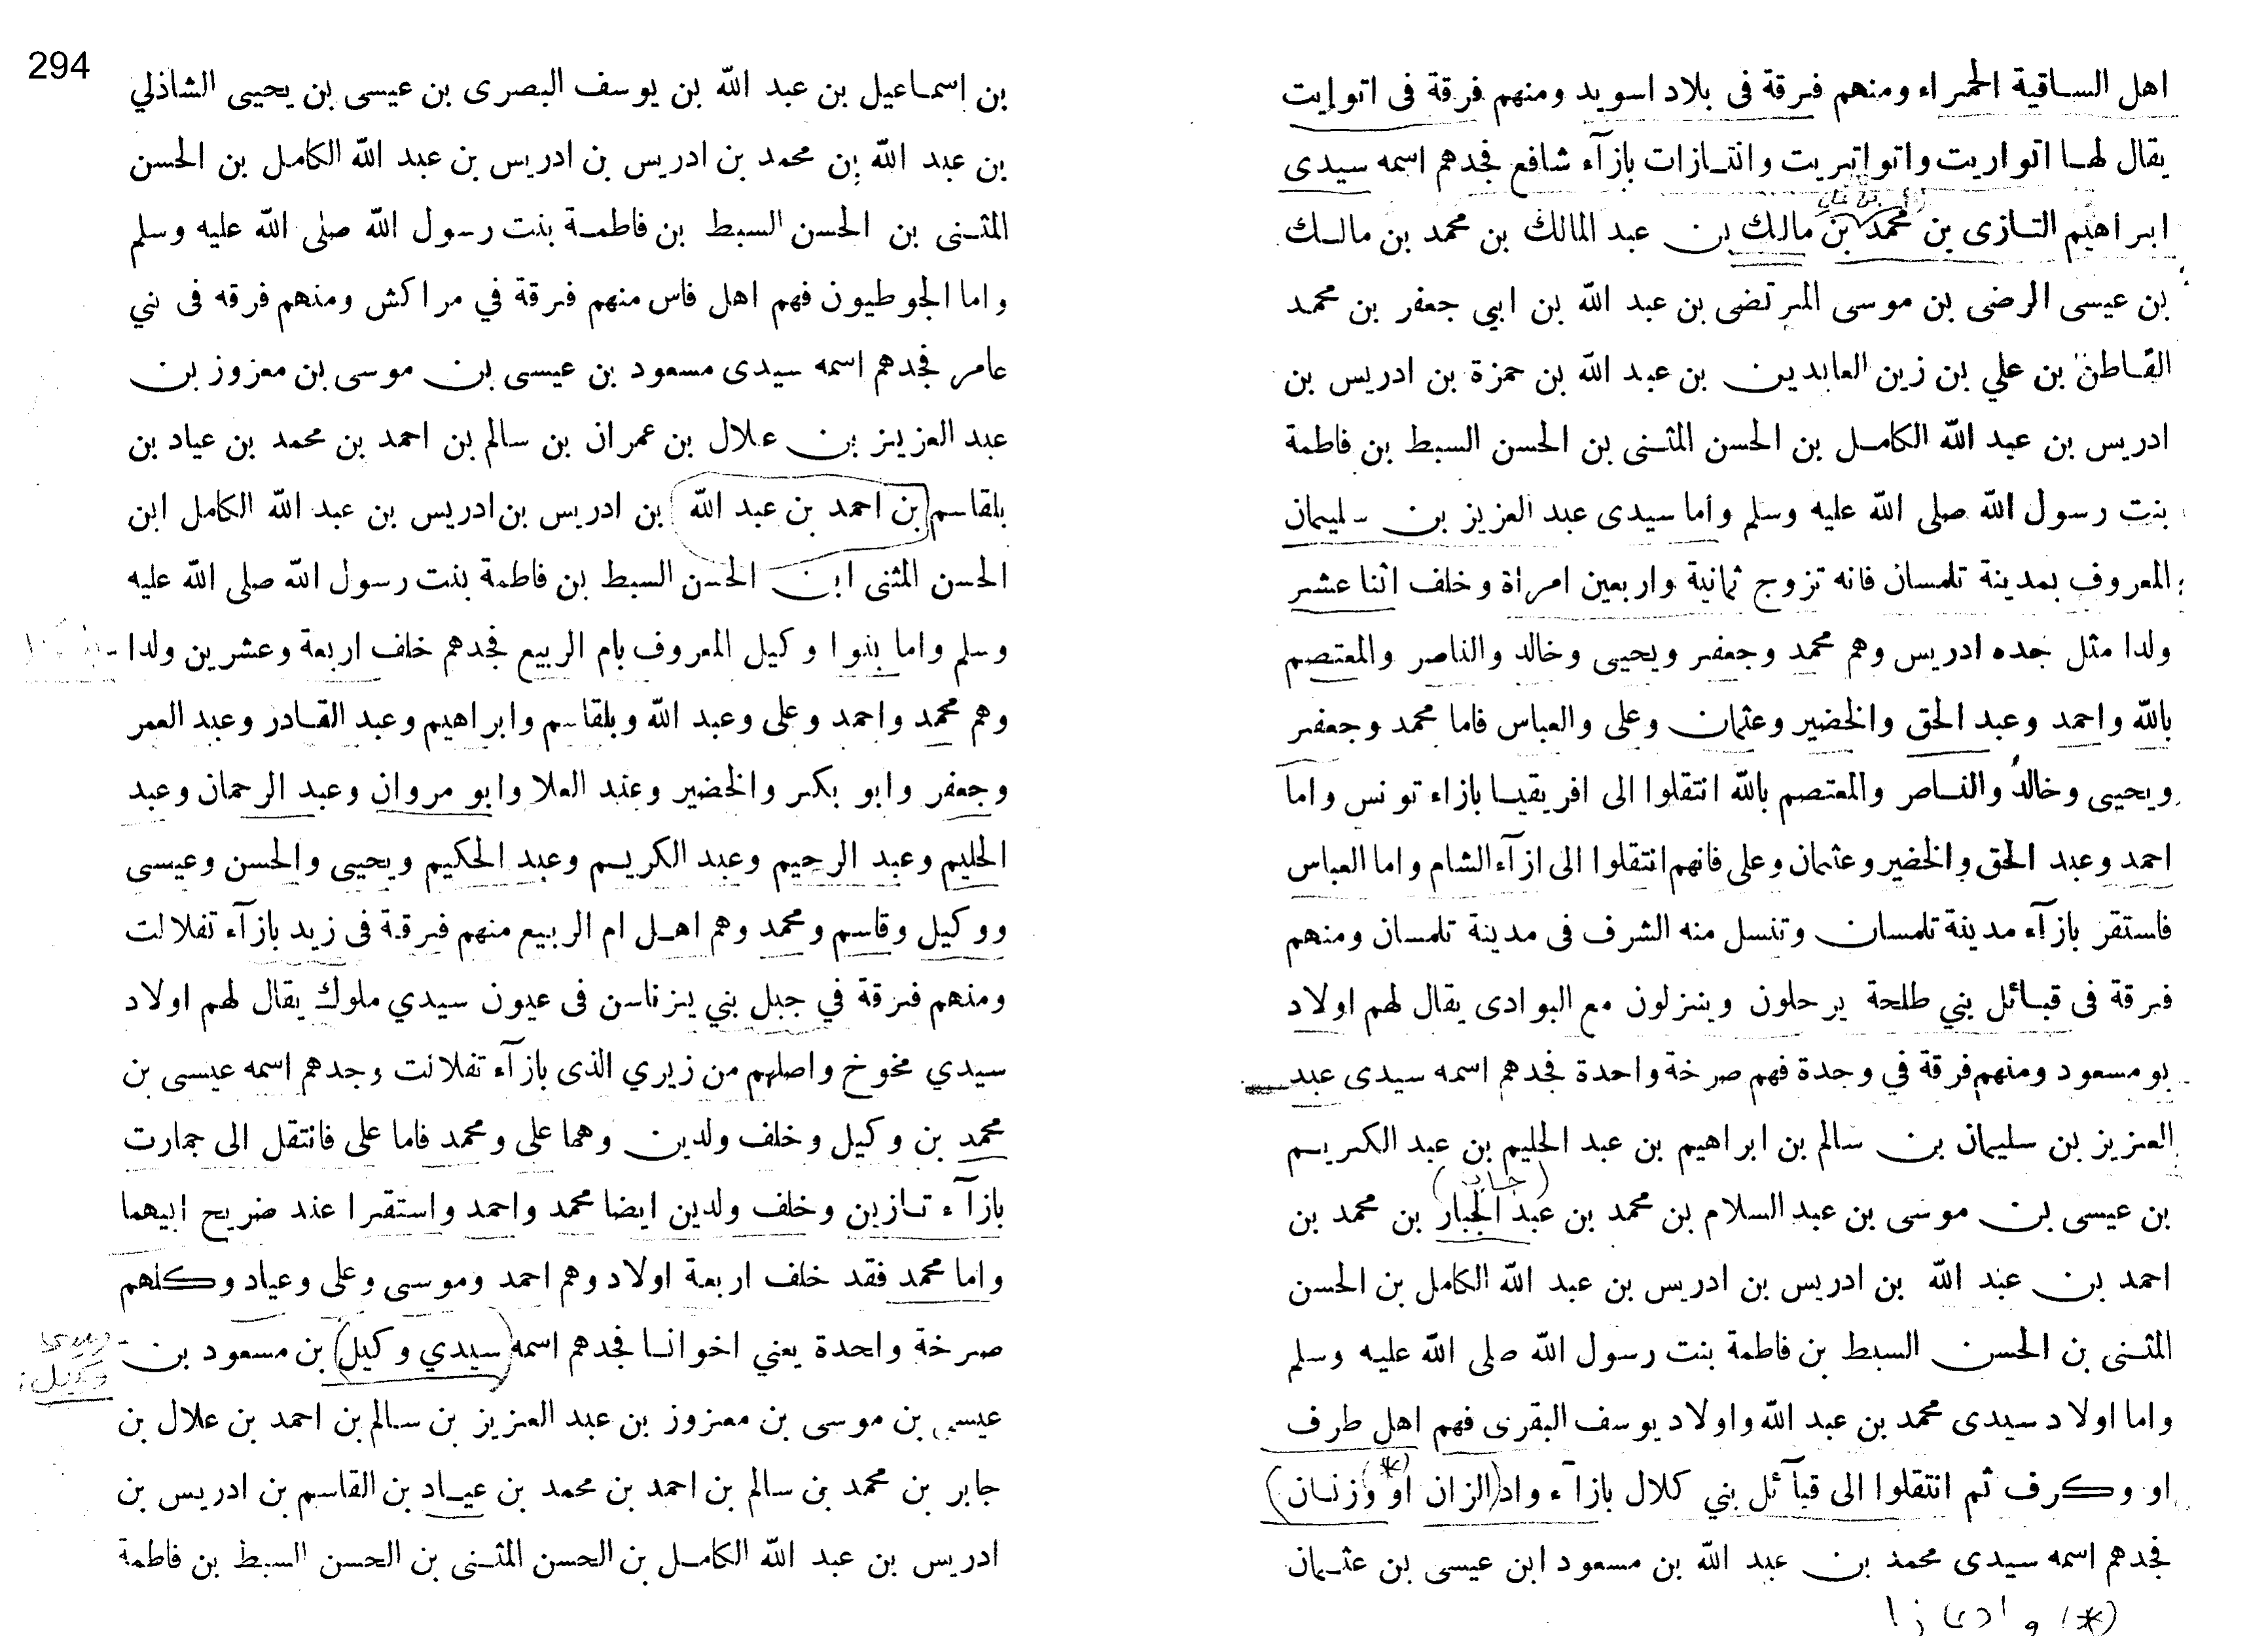 اهل الساقية الحمراء ومنهم فرقة فى بلاد اسويد ومنهم فرقة فى اتوايت
يقال لها اتواريت واتواتبريت وانتازات بازآء شافع فجدهم اسمه سيدى
ابراهيم التازى بن محمد بن مالك بن عبد المالك بن محمد بن مالك
بن عيسى الرضى بن موسى المرتضى بن عبد الله بن ابي جعفر بن محمد
القاطن بن علي بن زين العابدين بن عبد الله بن حمزة بن ادريس بن
ادريس بن عبد الله الكامل بن الحسن المثنى بن الحسن السبط بن فاطمة
بنت رسول الله صلى الله عليه وسلم واما سيدى عبد العزيز بن سليمان
المعروف بمدينة تلمسان فانه تزوج ثمانية واربعين امراة وخلف اثنا عشر
ولدا مثل جده ادريس وهم محمد وجعفر ويحيى وخالد والناصر والمعتصم
بالله واحمد وعبد الحق والخضير وعثمان وعلى والعباس فاما محمد وجعفر
ويحيى وخالد والناصر والمعتصم بالله انتقلوا الى افريقيا بازاء تونس واما
احمد وعبد الحق والخضير وعثمان وعلى فانهم انتقلوا الى ازآء الشام واما العباس
فاستقر بازآء مدينة تلمسان وتنسل منه الشرف فى مدينة تلمسان ومنهم
فرقة فى قبائل بني طلحة يرحلون وينزلون مع البوادى يقال لهم اولاد
بو مسعود ومنهم فرقة في وجدة فهم صرخة واحدة فجدهم اسمه سيدى عبد
العزيز بن سليمان بن سالم بن ابراهيم بن عبد الحليم بن عبد الكريم
(جابر)
بن عيسى بن موسى بن عبد السلام بن محمد بن عبد الجبار بن محمد بن
احمد بن عبد الله بن ادريس بن ادريس بن عبد الله الكامل بن الحسن
المثنى بن الحسن السبط بن فاطمة بنت رسول الله صلى الله عليه وسلم
واما اولاد سيدى محمد بن عبد الله واولاد يوسف البقرى فهم اهل طرف
او وكرف ثم انتقلوا الى قبآئل بني كلال بازآء واد (الزان او (*) وزنان)
فجدهم اسمه سيدى محمد بن عبد الله بن مسعود ابن عيسى بن عثمان
294
بن إسماعيل بن عبد الله بن يوسف البصرى بن عيسى بن يحيى الشاذلي
بن عبد الله بن محمد بن ادريس بن ادريس بن عبد الله الكامل بن الحسن
المثنى بن الحسن السبط بن فاطمة بنت رسول الله صلى الله عليه وسلم
واما الجوطيون فهم اهل فاس منهم فرقة في مراكش ومنهم فرقه فى بني
عامر فجدهم اسمه سيدى مسعود بن عيسى بن موسى بن معزوز بن
عبد العزيز بن علال بن عمران بن سالم بن احمد بن محمد بن عياد بن
بلقاسم بن احمد بن عبد الله بن ادريس بن ادريس بن عبد الله الكامل ابن
الحسن المثنى ابن الحسن السبط بن فاطمة بنت رسول الله صلى الله عليه
وسلم واما بنوا وكيل المعروف بام الربيع فجدهم خلف اربعة وعشرين ولدا
وهم محمد واحمد وعلى وعبد الله وبلقاسم وابراهيم وعبد القادر وعبد العمر
وجعفر وابو بكر والخضير وعبد العلا وابو مروان وعبد الرحمان وعبد
الحليم وعبد الرحيم وعبد الكريم وعبد الحكيم ويحيى والحسن وعيسى
ووكيل وقاسم ومحمد وهم اهل ام الربيع منهم فرقة فى زيد بازآء تفلالت
ومنهم فرقة في جبل بني يزناسن فى عيون سيدي ملوك يقال لهم اولاد
سيدي مخوخ واصلهم من زيري الذى بازآء تفلالت وجدهم اسمه عيسى بن
محمد بن وكيل وخلف ولدين وهما على ومحمد فاما على فانتقل الى جمارت
بازآء تازين وخلف ولدين ايضا محمد واحمد واستقرا عند ضريح ابيهما
واما محمد فقد خلف اربعة اولاد وهم احمد وموسى وعلى وعياد وكلهم
صرخة واحدة يعني اخوانا فجدهم اسمه (سيدي وكيل) بن مسعود بن
عيسى بن موسى بن معزوز بن عبد العزيز بن سالم بن احمد بن علال بن
جابر بن محمد بن سالم بن احمد بن محمد بن عياد بن القاسم بن ادريس بن
ادريس بن عبد الله الكامل بن الحسن المثنى بن الحسن السبط بن فاطمة